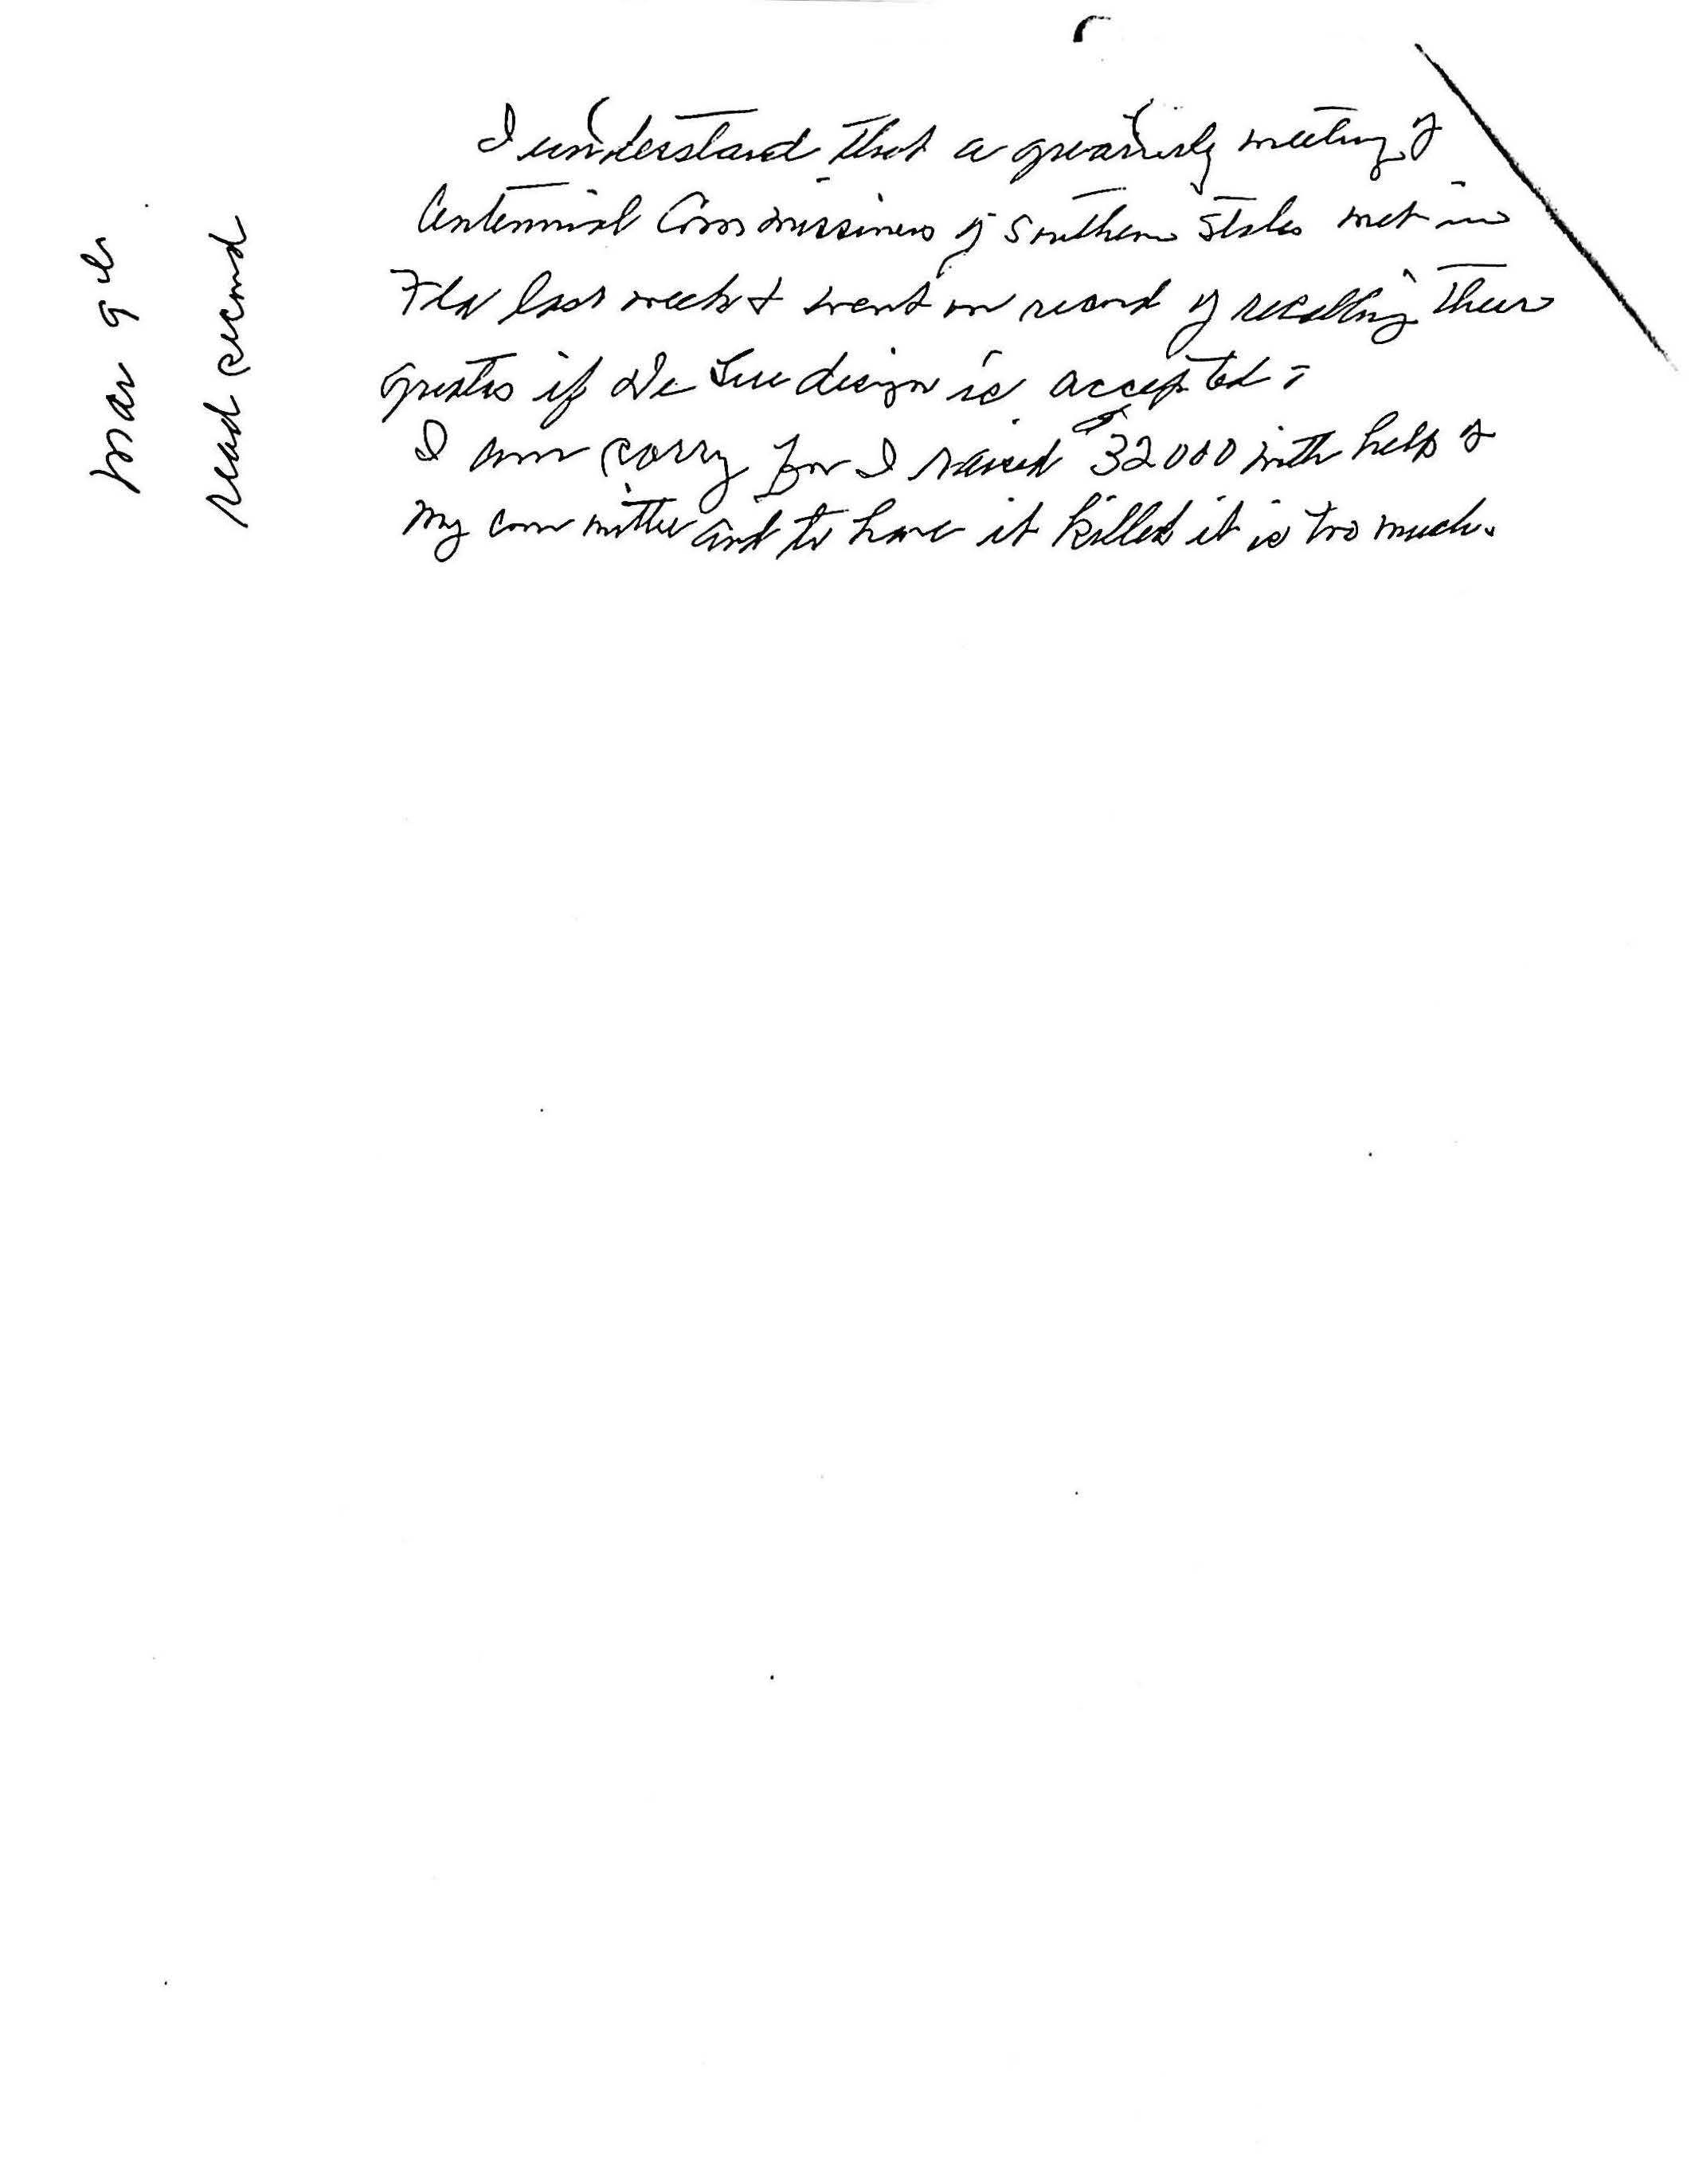 Mar 9th
read second
I understand that a quarterly meeting of
Centennial Commissioners of Southern States met in
Fla last week & went on record of recalling their
if De Lue design is accepted -
I am sorry for I raised 32000 with help of
my committee and to have it killed it is too much.